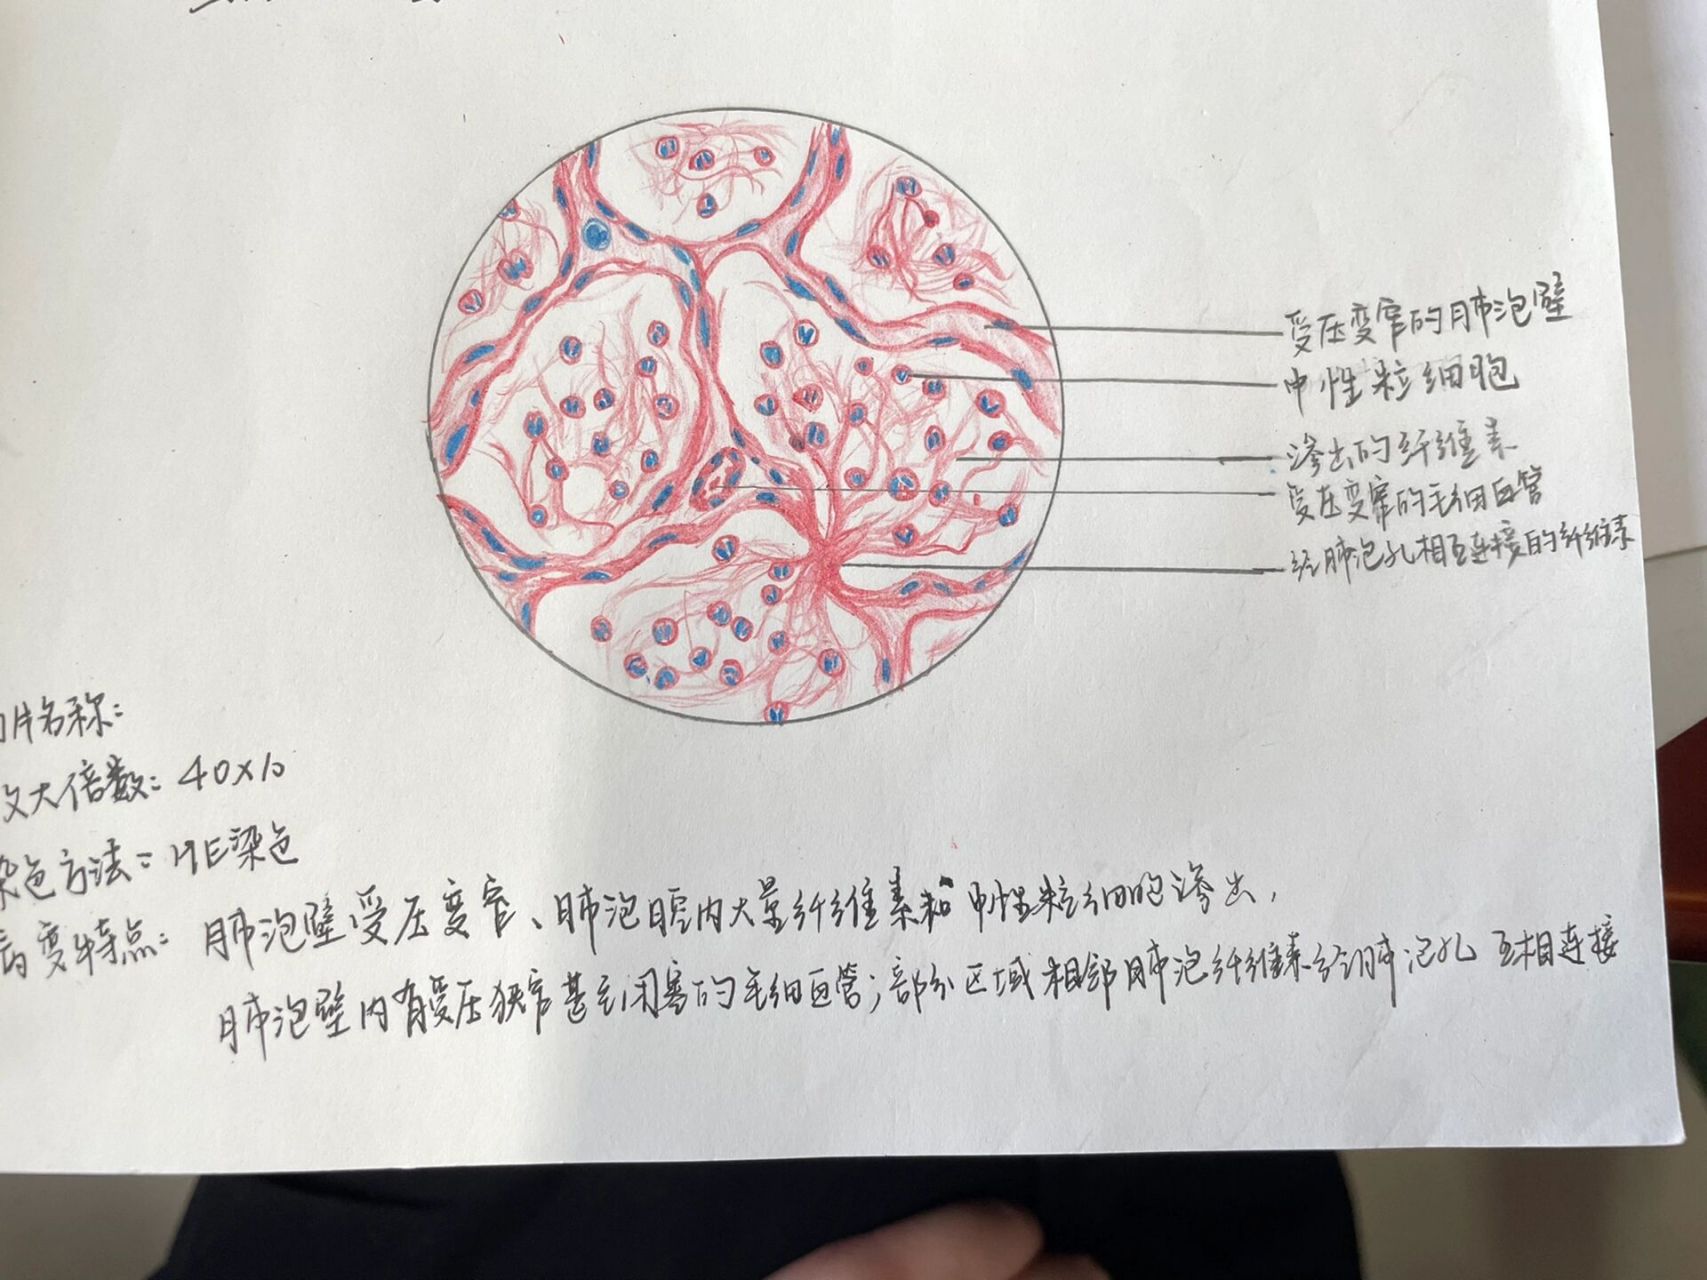 受压变窄的肺泡壁
中性粒细胞
渗出的纤维素
受压变窄的毛细血管
经肺泡孔相互连接的纤维素
切片名称:
放大倍数: 40×10
染色方法: HE染色
病变特点: 肺泡壁受压变窄、肺泡腔内大量纤维素和中性粒细胞渗出,
肺泡壁内有受压狭窄甚至闭塞的毛细血管;部分区域相邻肺泡纤维素经肺泡孔互相连接